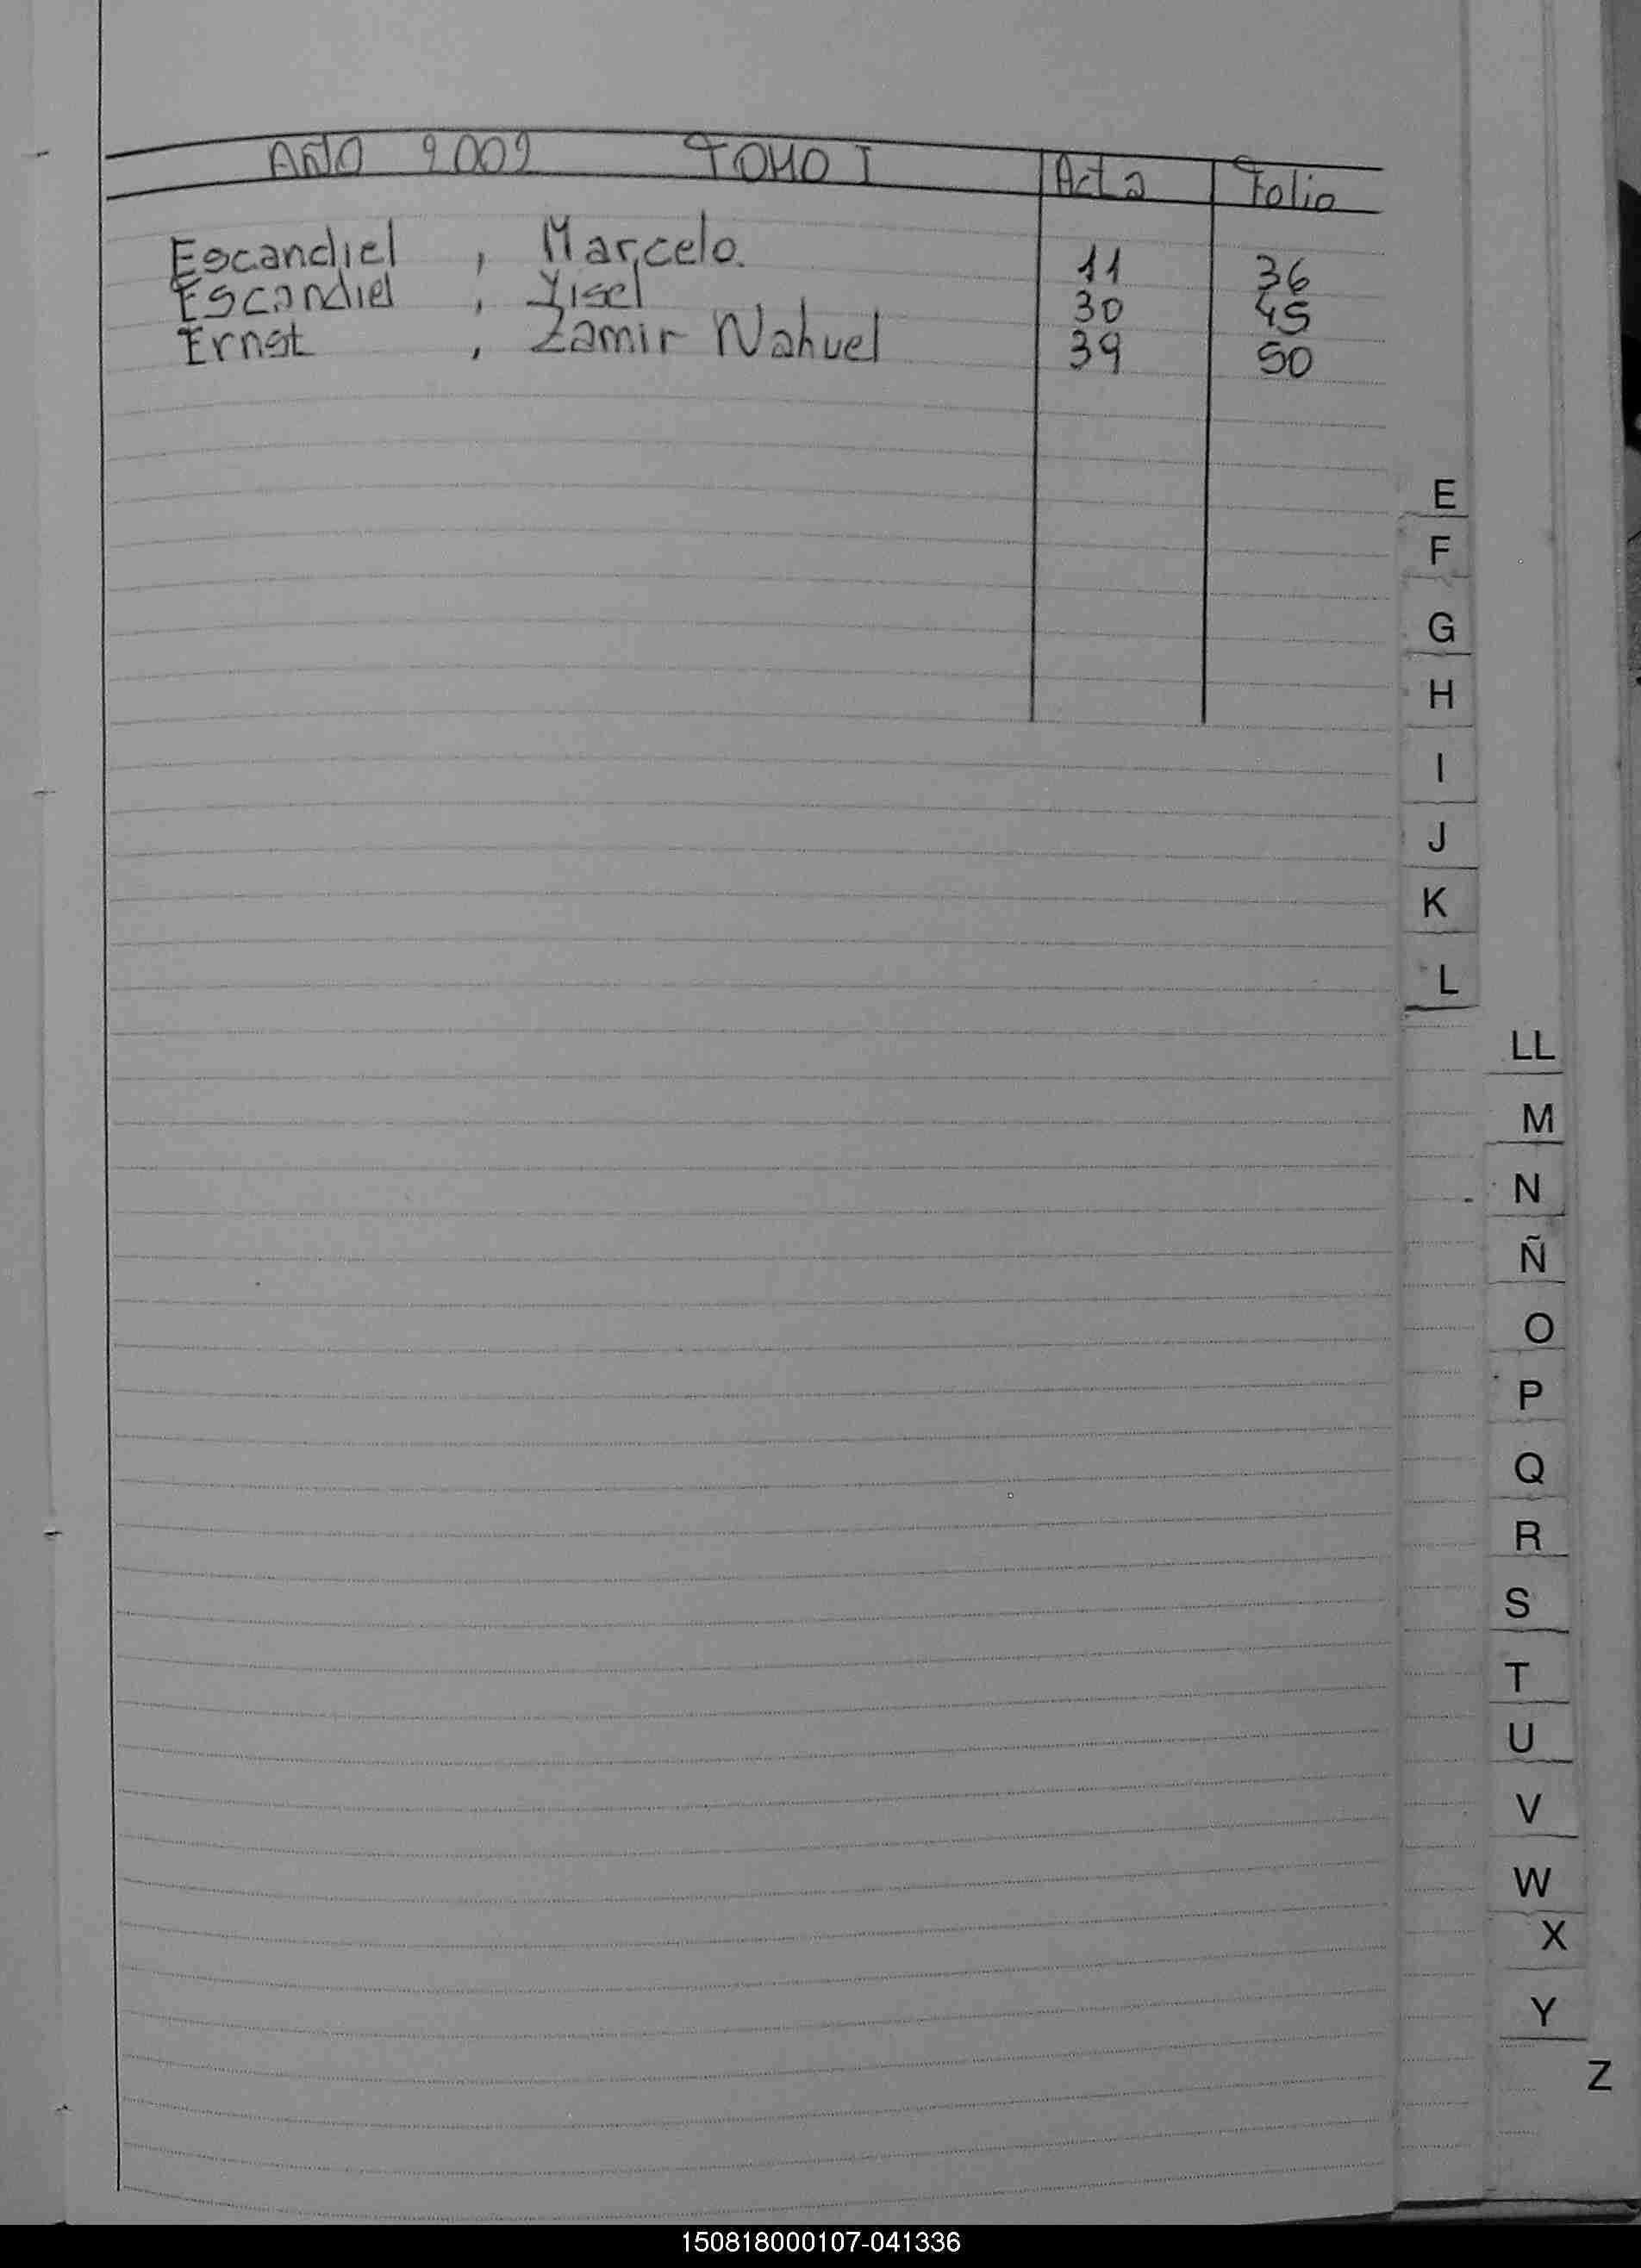 AÑO 2002 TOMO I Acta Folio
Escandiel , Marcelo. 11 36
Escandiel , Yisel 30 45
Ernst , Zamir Nahuel 39 50
E
F
G
H
I
J
K
L
LL
M
N
Ñ
O
P
Q
R
S
T
U
V
W
X
Y
Z
150818000107-041336